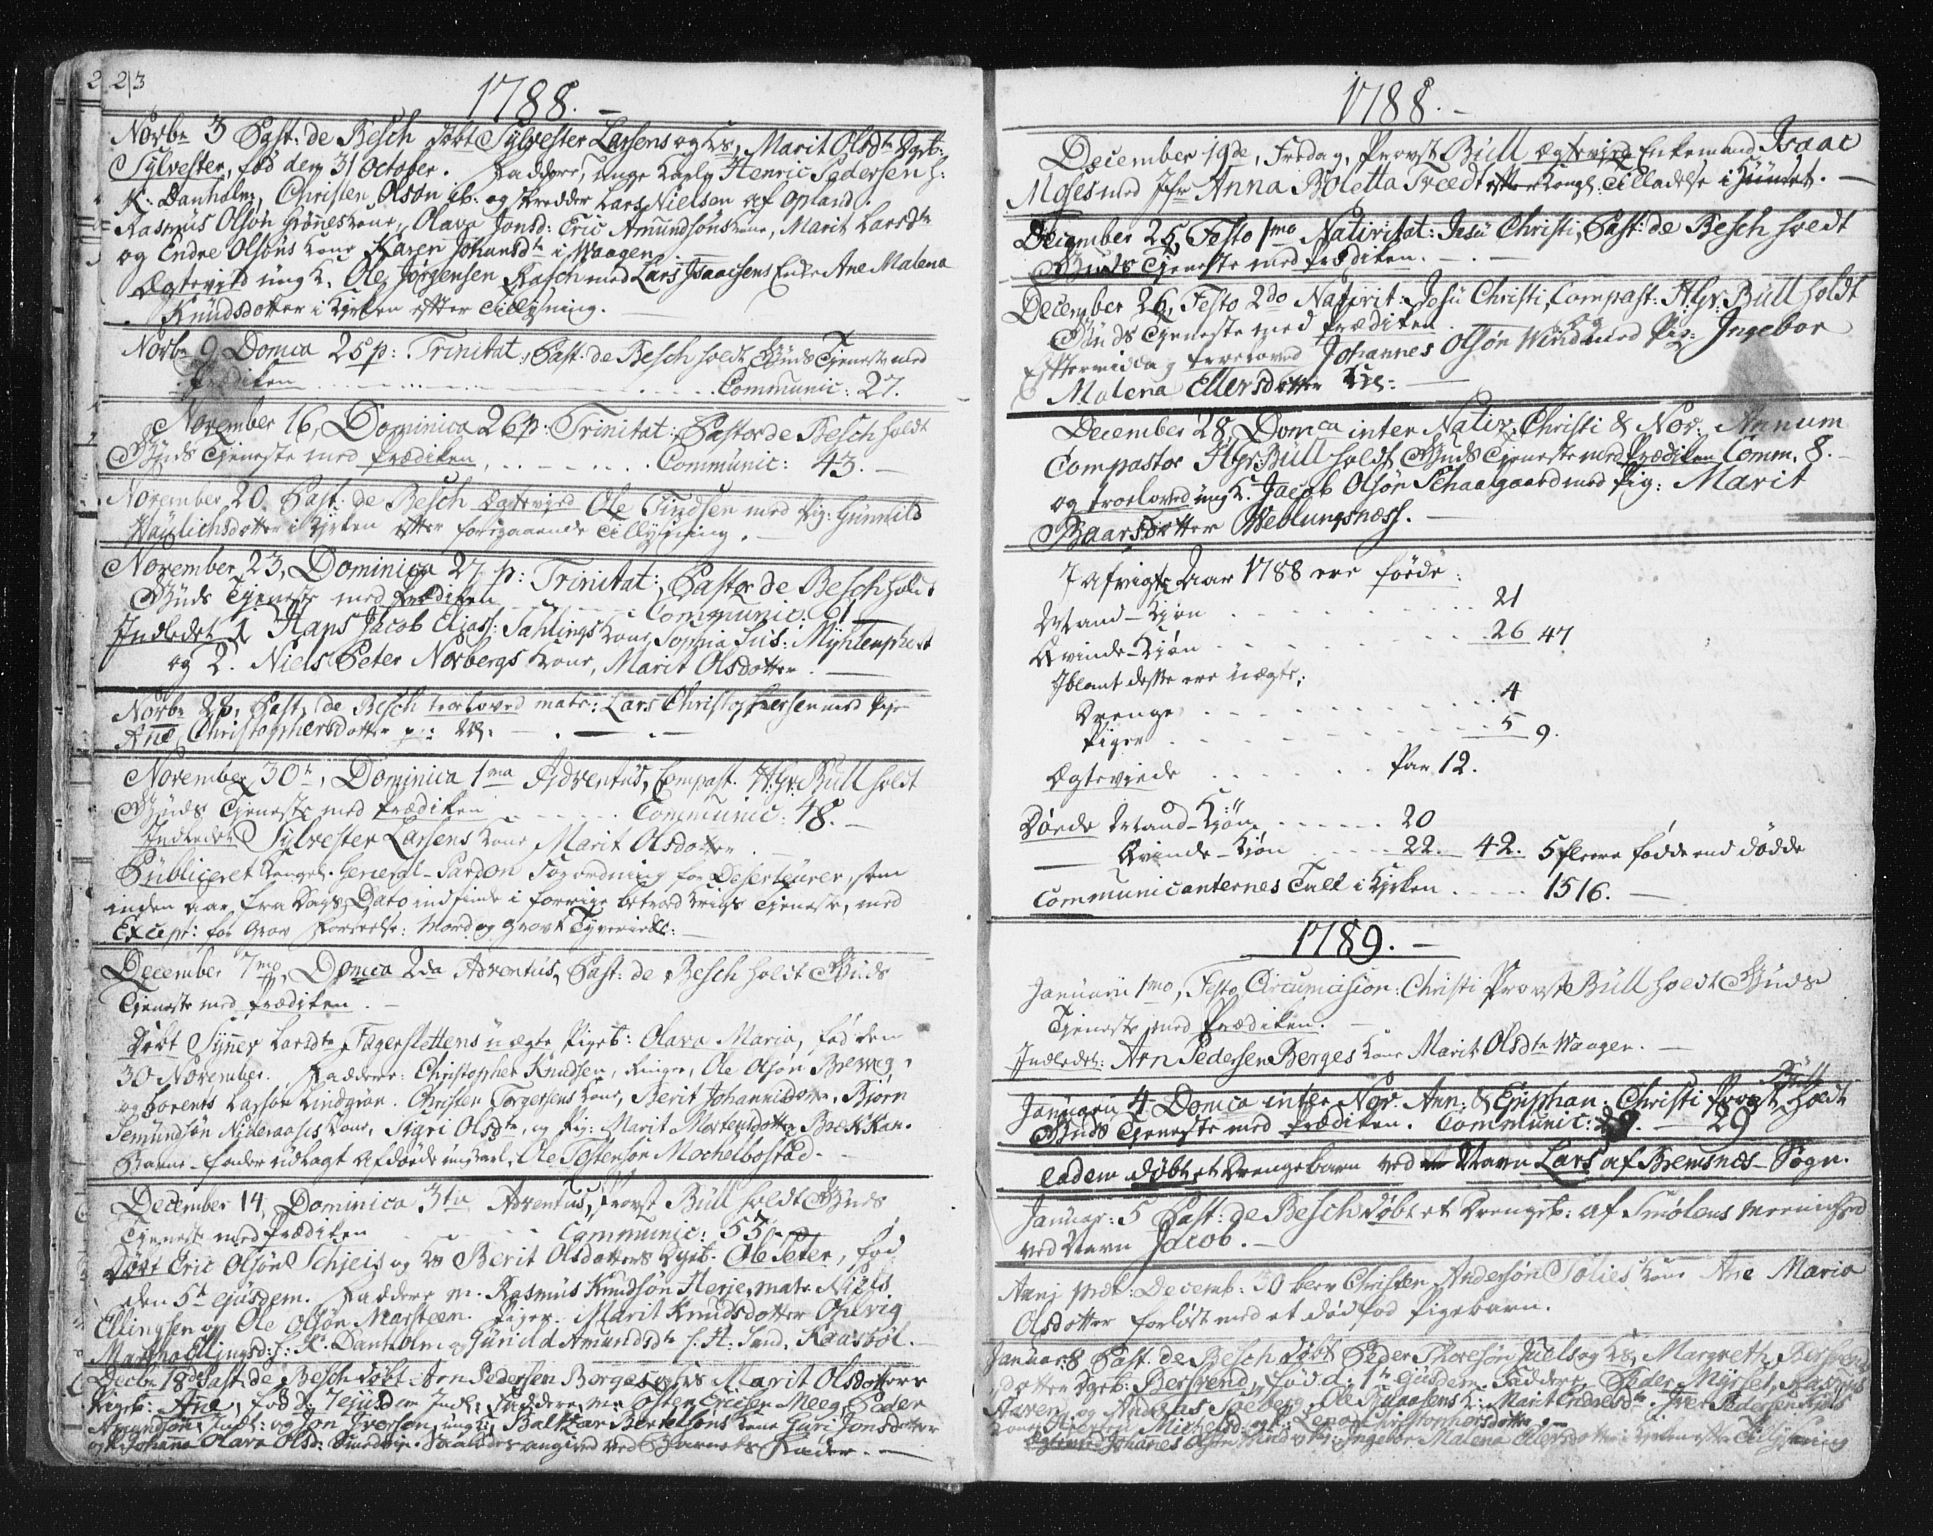 223
1788. –
Novbr 3 Past: de Besch døbt Sylvester Larsens og Hs, Marit Olsdtr Dgeb:
Sylvester, fød den 31 October. Faddere, unge Karle Henric Pedersen h:
K: Danholm, Christen Olsøn og Skredder Lars Nielsen af Opland.
Rasmus Olsøn Kone, Olava Jonsd: Eric Amundsøns Kone, Marit Larsdtr
og Endre Olsøns Kone Karen Johansdtr i Waagen.
Ægteviid ung K. Ole Jørgensen Rasch med Lars Isaacsens Enke Ane Malena
Knudsdotter i Kirken efter Tillysning.
Novbr 9 Domca 25 p: Trinitat: Past: de Besch holdt Guds Tjeneste med
Prædiken ... Communic: 27.
November 16, Dominica 26 p: Trinitat: Pastor de Besch holdt
Guds Tjeneste med Prædiken, ... Communic: 43. –
November 20. Past: de Besch Ægteviid Ole Findsen med Pig: Gunnild
i Kirken efter foregaaende Tillysning. –
November 23, Dominica 27 p: Trinitat: Pastor de Besch holdt
Guds Tjeneste med Prædiken ... Communic: 61 –
Indledet 1 Hans Jacob Elias: Sahlings Kone, Sophia Sus: Myhlenphort
og 2. Niels Peter Norbergs Kone, Marit Olsdotter. –
Novbr 28, Past, de Besch troelovet matr: Lars Christophersen med Pige
Ane Christophersdotter
November 30te, Dominica 1ma Adventus, Compast. H:gr: Bull holdt
Guds Tjeneste med Prædiken ... Communic: 48. –
Indledet Sylvester Larsens Kone Marit Olsdotter
Publiceret Kongel. General-Pardon Forordning for Deserteurer, som
inden Aar fra Dags Dato indfinde i forrige Krigs Tjeneste, med
Except: for Grov Forseelse: Mord og grovt Tyverie
December 7mo, Domca 2da Adventus, Past: de Besch holdt Guds
Tjeneste med Prædiken. –
Døbt Synev Larsdtr Fagerslettens uægte Pigeb: Olava Maria, fød den
30 November. Faddere: Christopher Knudsen, Ringer, Ole Olsøn Breveg,
og Lorents Larsøn Lindgron. Christen Torgersens Kone, Berit Johannisdotter, Biørn
Semundsøn Nideraases Kone, Sigri Olsdtr, og Pig: Marit Mortensdotter Bæckken.
Barne-Fader udlagt Afdøde ung Karl, Ole Tostensøn Mochelbostad. –
December 14, Dominica 3tia Adventus, Provst Bull holdt Guds
Tjeneste med Prædiken ... Communic: 53
Døbt Eric Olsøn Schjeis og Hs Berit Olsdotters Dgeb. Ole Peter, fød
den 5te ejusdem. Faddere m. Rasmus Knudsøn Herje, matr. Niels
Ellingsen og Ole Olsøn Marsteen. Piger. Marit Knudsdotter Gilvig
Martha Ellingsd: h: K. Danholm og Gunild Amundsdtr h. H. Sand, Kaasbøl. –
Decbr 18de Past de Besch døbt Arn Pedersen Borges og Hs Marit Olsdotters
Pigeb: Ane, fød d: 7 ejusdem. Indl: Faddere m: Osten Ericsen Meeg, Peder
Amundsøn og Jon Iversen, ung K; Baltzar Bertelsøns Kone Guri Jonsdotter
og Johana Olava Olsd: angived ved Barnets Fader. –
1788. –
December 19de, Fredag, Provst Bull Ægteviid Enkemand Isaac
Moses med Jfr Anna Boletta Tveedt efter Kongl. Tilladelse i Huuset. –
December 25, Festo 1mo Nativitat: Jesu Christi, Past: de Besch holdt
Guds Tjeneste med Prædiken. –
December 26, Festo 2do Nativit: Jesu Christi, Compast: H:gr: Bull holdt
Guds Tjeneste med Prædiken og
Eftermiddag troelovet Johannes Olsøn Wiind med Pig: Ingebor
Malena Ellersdotter
December 28, Domca inter Nativ. Christi & Nov. Annum
Compastor H:gr: Bull holdt Guds Tjeneste med Prædiken Comm. 8. –
og troeloved ung K. Jacob Olsøn Schaalgaard med Pig: Marit
Baarsdotter Weblungsnæss. –
I afvigte Aar 1788 ere føde:
Mand-Kjøn ... 21
Qvinde-Kjøn ... 26 47
Iblant disse ere uægte,
Drenge ... 4
Piger ... 5 9.
Ægteviede ... Par 12.
Døde Mand-Kjön ... 20
— Qvinde-Kjøn ... 22. – 42. 5 fleere fødde end dödde
Communicanternes Tall i Kirken ... 1516. –
1789. –
Januarii 1mo, Festo Circumcision: Christi Provst Bull holdt Guds
Tjeneste med Prædiken. –
Indledet: Arn Pedersen Berges Kone Marit Olsdtr Waagen. –
Januarii 4 Domca inter Nov. Ann: & Epiphan: Christi Provst Bull holdt
Guds Tjeneste med Prædiken. Communic: 29. – 29
eadem døbt et Drengebarn ved Navn Lars af Bremsnes-Sogn.
Januar: 5 Past: de Besch døbt et Drengeb: af Smölens Meenighed
ved Navn Jacob. –
Anni præt: Decemb: 30 blev Christen Andersøn Tolies Kone Ane Maria
Olsdotter forløst med et dødfød Pigebarn.
Januar: 8 Past: de Besch døbt Peder Thoresøn Juels og Hs, Margreth Bersvend
dotter Dgeb: Bersvend, fød d: 1te ejusdem. Faddere, Peder Myrset, Rasmus
Aaren, og Andreas Soeberg, Ole Isaacsens K: Marit Endresdtr, Iver Pedersen
Kone, Michelsd: og P: Lena Christophersdotter. –
Ægteviid Johannes Olsøn Wiind og Pig: Ingebor Malena Ellersdotter i Kirken efter Tillysning